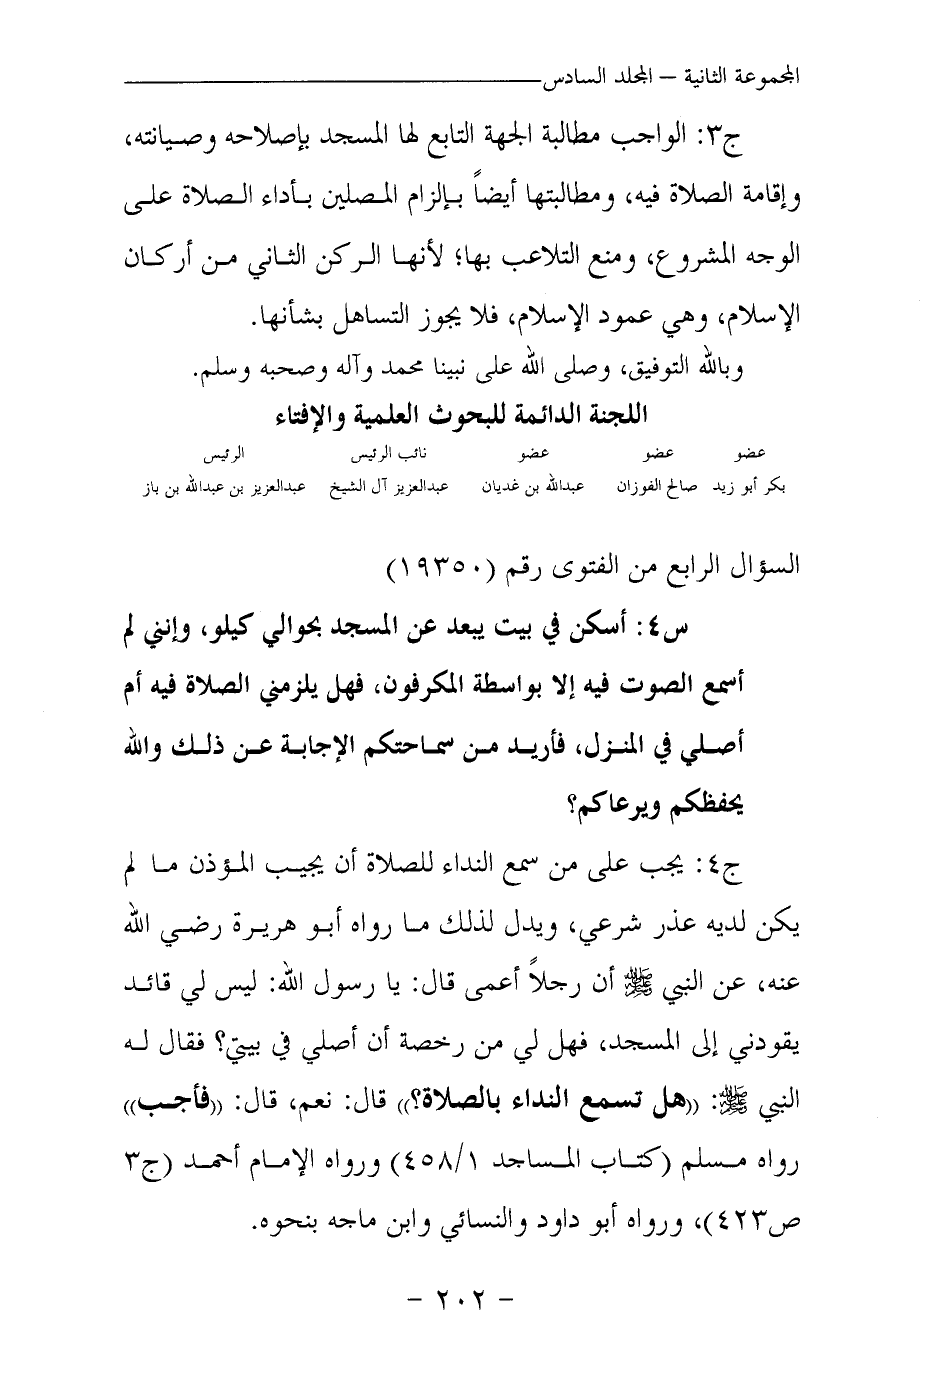 المجموعة الثانية – المجلد السادس
ج٣: الواجب مطالبة الجهة التابع لها المسجد بإصلاحه وصيانته،
وإقامة الصلاة فيه، ومطالبتها أيضاً بإلزام المصلين بأداء الصلاة على
الوجه المشروع، ومنع التلاعب بها؛ لأنها الركن الثاني من أركان
الإسلام، وهي عمود الإسلام، فلا يجوز التساهل بشأنها.
وبالله التوفيق، وصلى الله على نبينا محمد وآله وصحبه وسلم.
اللجنة الدائمة للبحوث العلمية والإفتاء
عضو عضو عضو نائب الرئيس الرئيس
بكر أبو زيد صالح الفوزان عبدالله بن غديان عبدالعزيز آل الشيخ عبدالعزيز بن عبدالله بن باز
السؤال الرابع من الفتوى رقم (١٩٣٥٠)
س٤: أسكن في بيت يبعد عن المسجد بحوالي كيلو، وإنني لم
أسمع الصوت فيه إلا بواسطة المكرفون، فهل يلزمني الصلاة فيه أم
أصلي في المنزل، فأريد من سماحتكم الإجابة عن ذلك والله
يحفظكم ويرعاكم؟
ج٤: يجب على من سمع النداء للصلاة أن يجيب المؤذن ما لم
يكن لديه عذر شرعي، ويدل لذلك ما رواه أبو هريرة رضي الله
عنه، عن النبي ﷺ أن رجلاً أعمى قال: يا رسول الله: ليس لي قائد
يقودني إلى المسجد، فهل لي من رخصة أن أصلي في بيتي؟ فقال له
النبي ﷺ: ((هل تسمع النداء بالصلاة؟)) قال: نعم، قال: ((فأجب))
رواه مسلم (كتاب المساجد ٤٥٨/١) ورواه الإمام أحمد (ج٣
ص٤٢٣)، ورواه أبو داود والنسائي وابن ماجه بنحوه.
- ٢٠٢ -